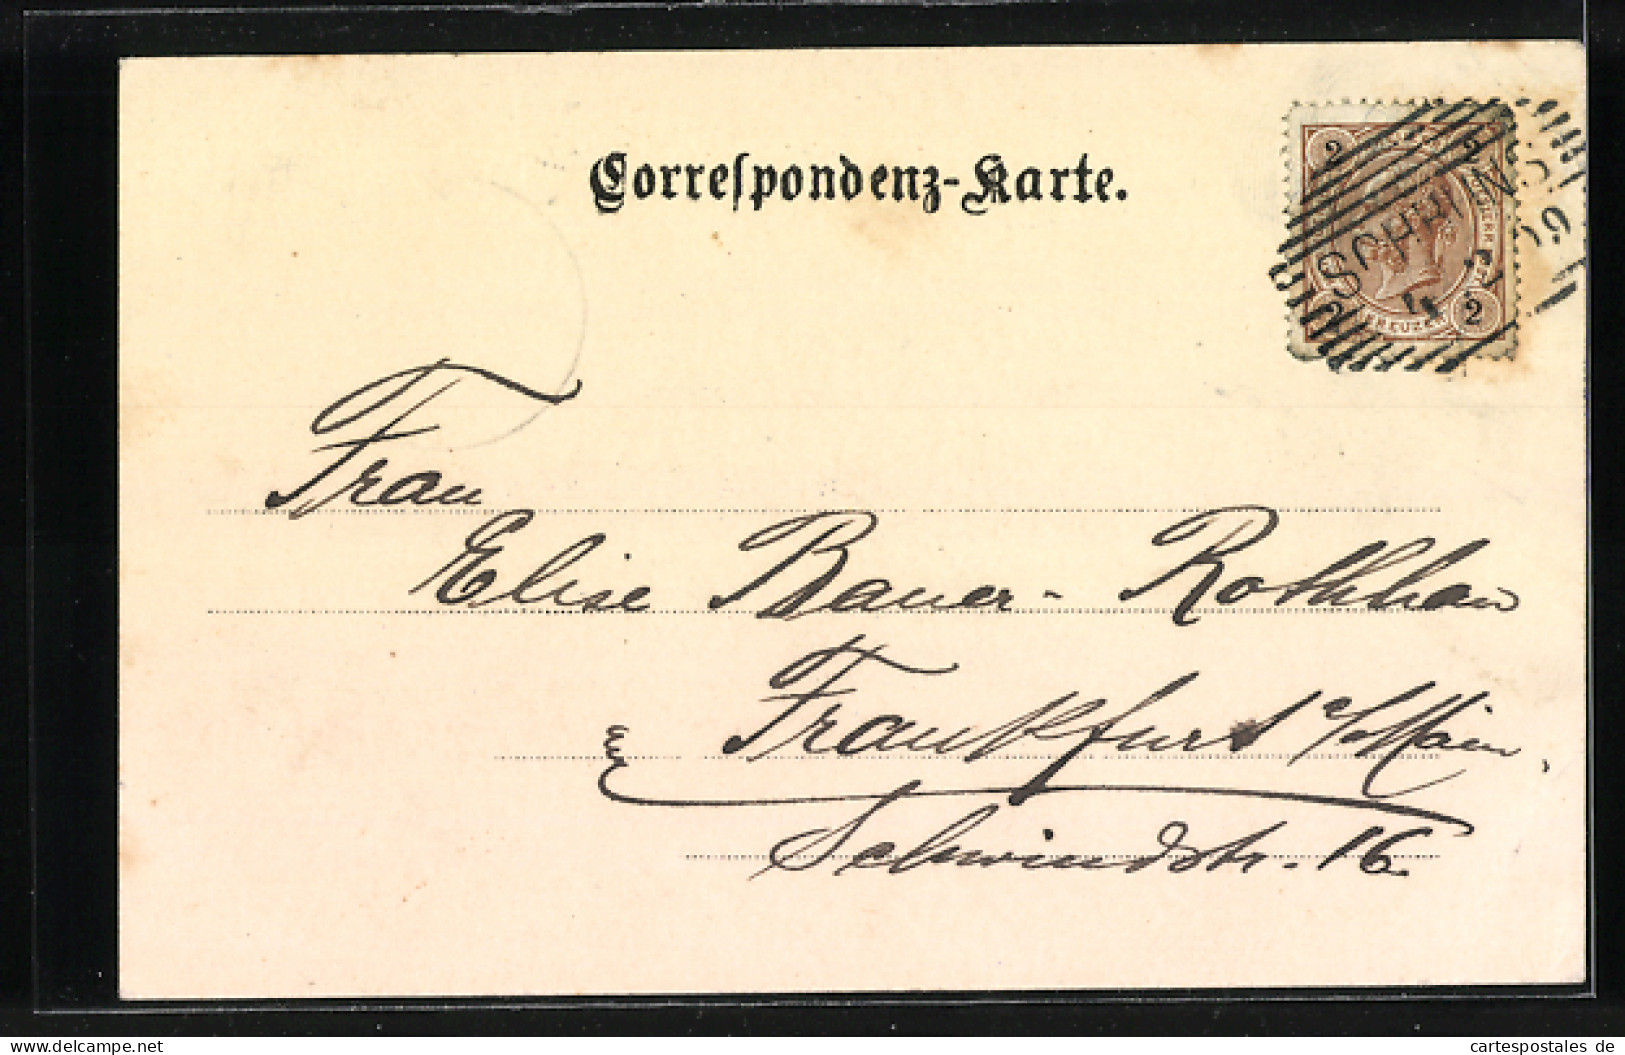 Correspondenz-Karte.
2 2
2
KREUZER
Frau
Elise Bauer-Rothhan
Frankfurt a/Main,
Schwindstr. 16.
www.cartespostales.de
cartespostales.de